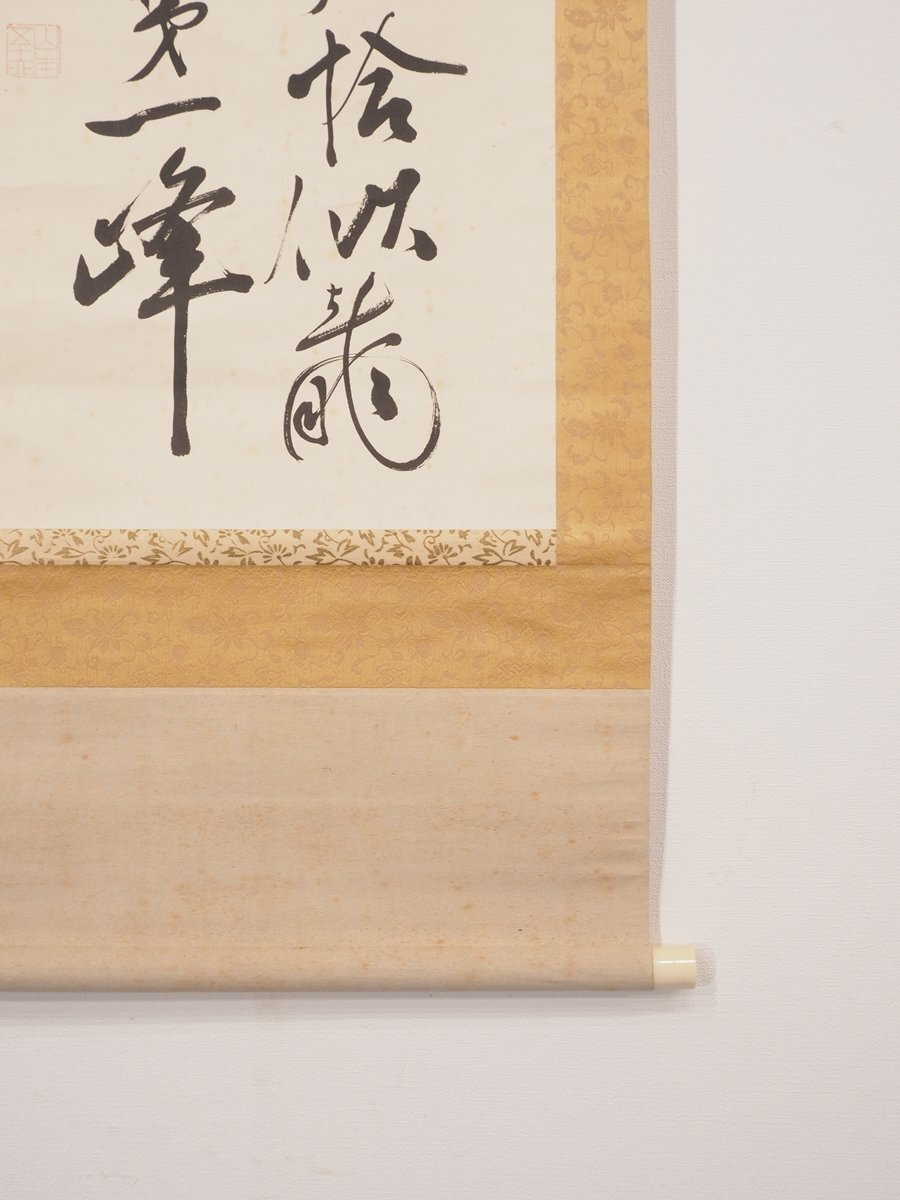 恰似龍
第一峰